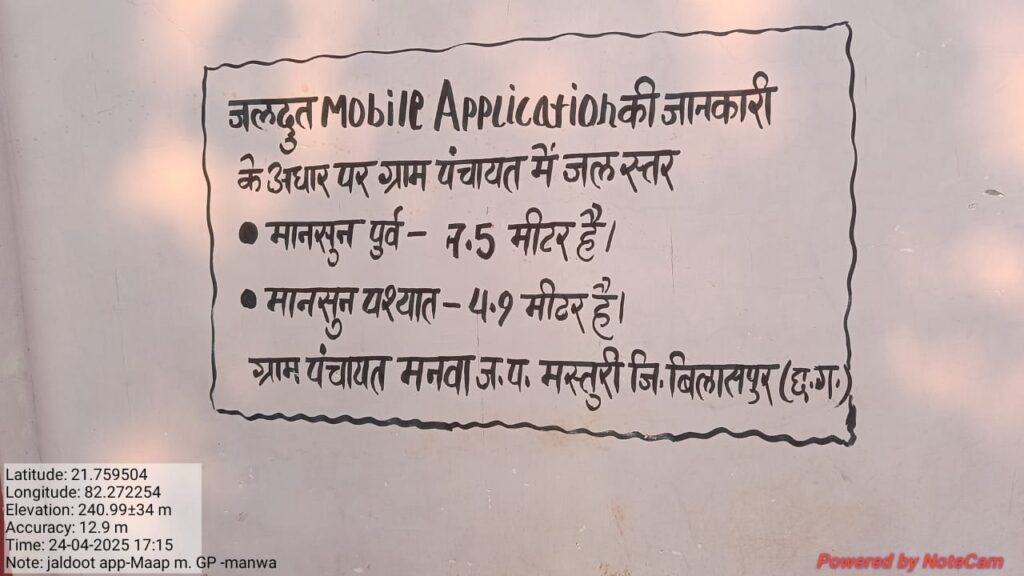 जलदुत mobile Application की जानकारी
के अधार पर ग्राम पंचायत में जल स्तर
• मानसुन पुर्व - 7.5 मीटर है।
• मानसुन पश्यात - 4.9 मीटर है।
ग्राम पंचायत मनवा ज.प. मस्तुरी जि. बिलासपुर (छ.ग.)
Latitude: 21.759504
Longitude: 82.272254
Elevation: 240.99±34 m
Accuracy: 12.9 m
Time: 24-04-2025 17:15
Note: jaldoot app-Maap m. GP -manwa
Powered by NoteCam